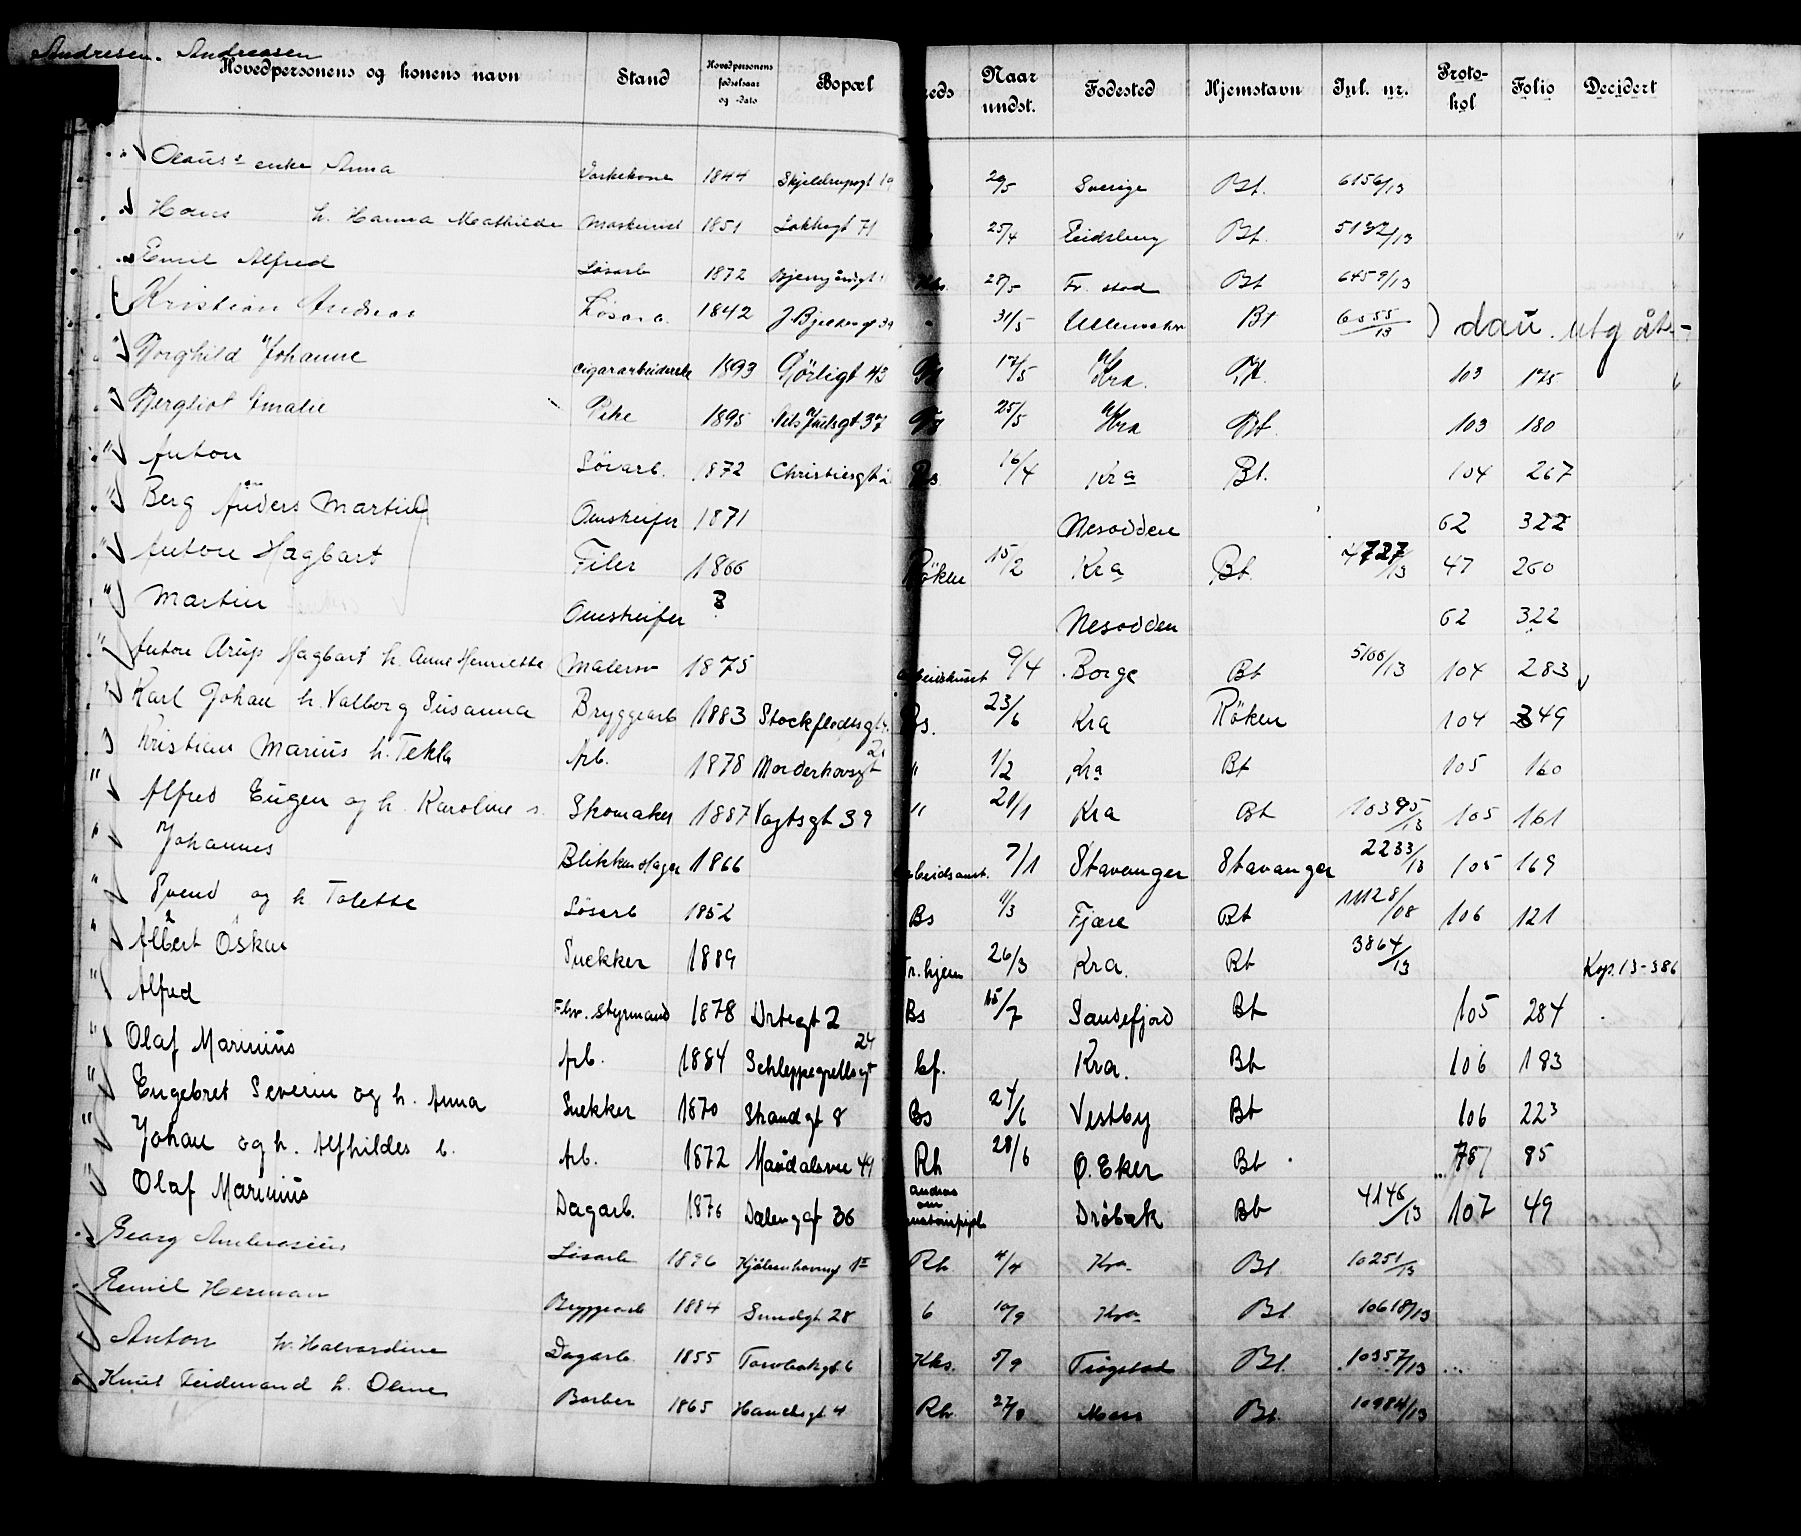 Andresen. Andreasen
Hovedpersonens og konens navn Stand Hovedpersonens fødselsaar og -dato Bopæl Naar undst. Fødested Hjemstavn Jnl. nr. Proto-kol Folio Decidert
Olaus's enke Anna Vaskekone 1844 Skjeldrupsgt 19 29/5 Sverige Bt. 6156/13
Hans h. Hanna Mathilde Maskinist 1851 Lakkegt 71 25/4 Eidsberg Bt. 5132/13
Emil Alfred Løsarb 1872 28/5 Fr. stad Bt 6459/13
Kristian Andreas Løsarb. 1842 31/5 Bt ) dau. utg åt-
Borghild Johanne cigararbeiderske 1893 Gørligt 43 12/5 Kra. Bt. 103 175
Bergliot Amalie Pike 1895 Nils Juelsgt 37 25/5 Kra Bt. 103 180
" Anton Løsarb. 1872 Christiesgt 2 Bs 16/4 Kra Bt. 104 267
" Berg Anders Martin Omstreifer 1871 Nesodden 62 322
" Anton Hagbart Filer 1866 Røken 15/2 Kra Bt 4727/13 47 260
" Martin Omstreifer ? Nesodden 62 322
" Anton Arup Hagbart h. Anne Henriette Malersv 1875 9/4 Borge Bt 5166/13 104 283
" Karl Johan h. Valborg Susanna Bryggearb 1883 Stockflethsgt Bs. 23/6 Kra Røken 104 349
Kristian Marius h. Tekla Arb. 1878 Marderhovsgt 21 " 1/2 Kra Bt 105 160
" Alfred Eugen og h. Karoline s. Skomaker 1887 Vogtsgt 39 " 21/1 Kra Bt 10395/13 105 161
" Johannes Blikkenslager 1866 Arbeidsanst. 7/1 Stavanger Stavanger 2233/13 105 169
" Svend og h Tolette Løsarb 1852 Bs 11/3 Fjære Bt 11128/08 106 121
" Albert Oskar Snekker 1889 Fr. hjem 26/3 Kra. Bt 3864/13 Kop. 13-386
" Alfred Fhv. Styrmand 1878 Urtegt 2 Bs 15/7 Sandefjord Bt 105 284
" Olaf Marinius Arb. 1884 Schleppegrellsgt 24 bf. Kra. Bt 106 183
" Engebret Severin og h. Anna Snekker 1870 Strandgt 8 Bs 24/6 Vestby Bt 106 223
" Johan og h. Alfhildes b. Arb. 1872 Maridalsvn 49 Rh 28/6 Ø. Eker Bt 787 85
" Olaf Marinius Dagarb. 1876 Dælengat 36 andras om Drøbak Bt 4146/13 107 49
Georg Ambrosius Løsarb 1896 Rh. 4/4 Kra Bt 10251/13
Emil Herman Bryggearb 1884 Smedgt 28 6 10/9 Kra Bt. 10618/13
Anton h. Halvardine Dagarb. 1855 Torvbakgt 6 Kks. 5/9 Trøgstad Bt. 10357/13
Knut Ferdinand h. Oline Barber 1865 Hauchsgt 4 Rh. 27/9 Moss Bt. 10984/13